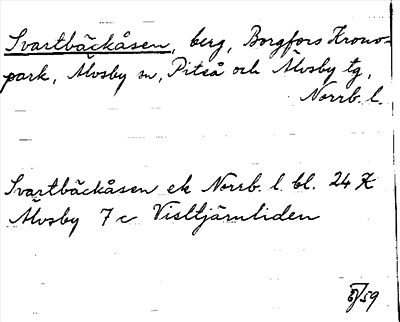 Svartbäckåsen, berg, Borgfors Krono-
park, Älvsby sn, Piteå och Älvsby tg,
Norrb. l.
Svartbäckåsen ek Norrb. l. bl. 24 K
Älvsby 7 c Visttjärnliden
/59